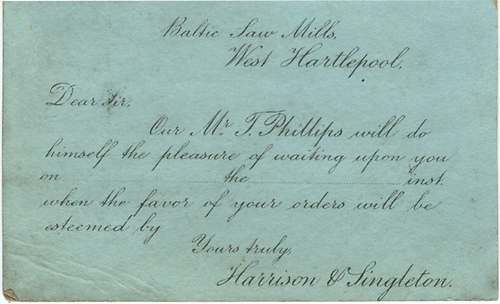 Baltic Saw Mills,
West Hartlepool.
Dear Sir,
Our Mr. T. Phillips will do
himself the pleasure of waiting upon you
on the inst.
when the favor of your orders will be
esteemed by
Yours truly,
Harrison & Singleton.